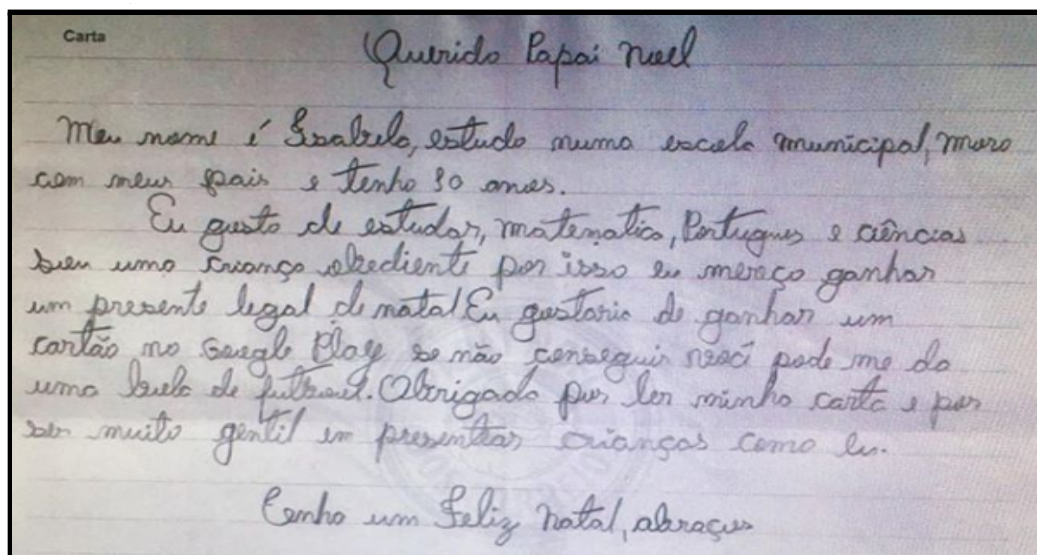 Carta
Querido Papai Noel
Meu nome é Isabela, estudo numa escola municipal, moro
com meus pais e tenho 10 anos.
Eu gosto de estudar, matematica, Portugues e ciências
sou uma criança obediente por isso eu mereço ganhar
um presente legal de natal Eu gostaria de ganhar um
cartão no Google Play se não conseguir você pode me da
uma bola de futebol. Obrigado por ler minha carta e por
ser muito gentil em presentiar crianças como eu.
Tenha um Feliz Natal, abraços